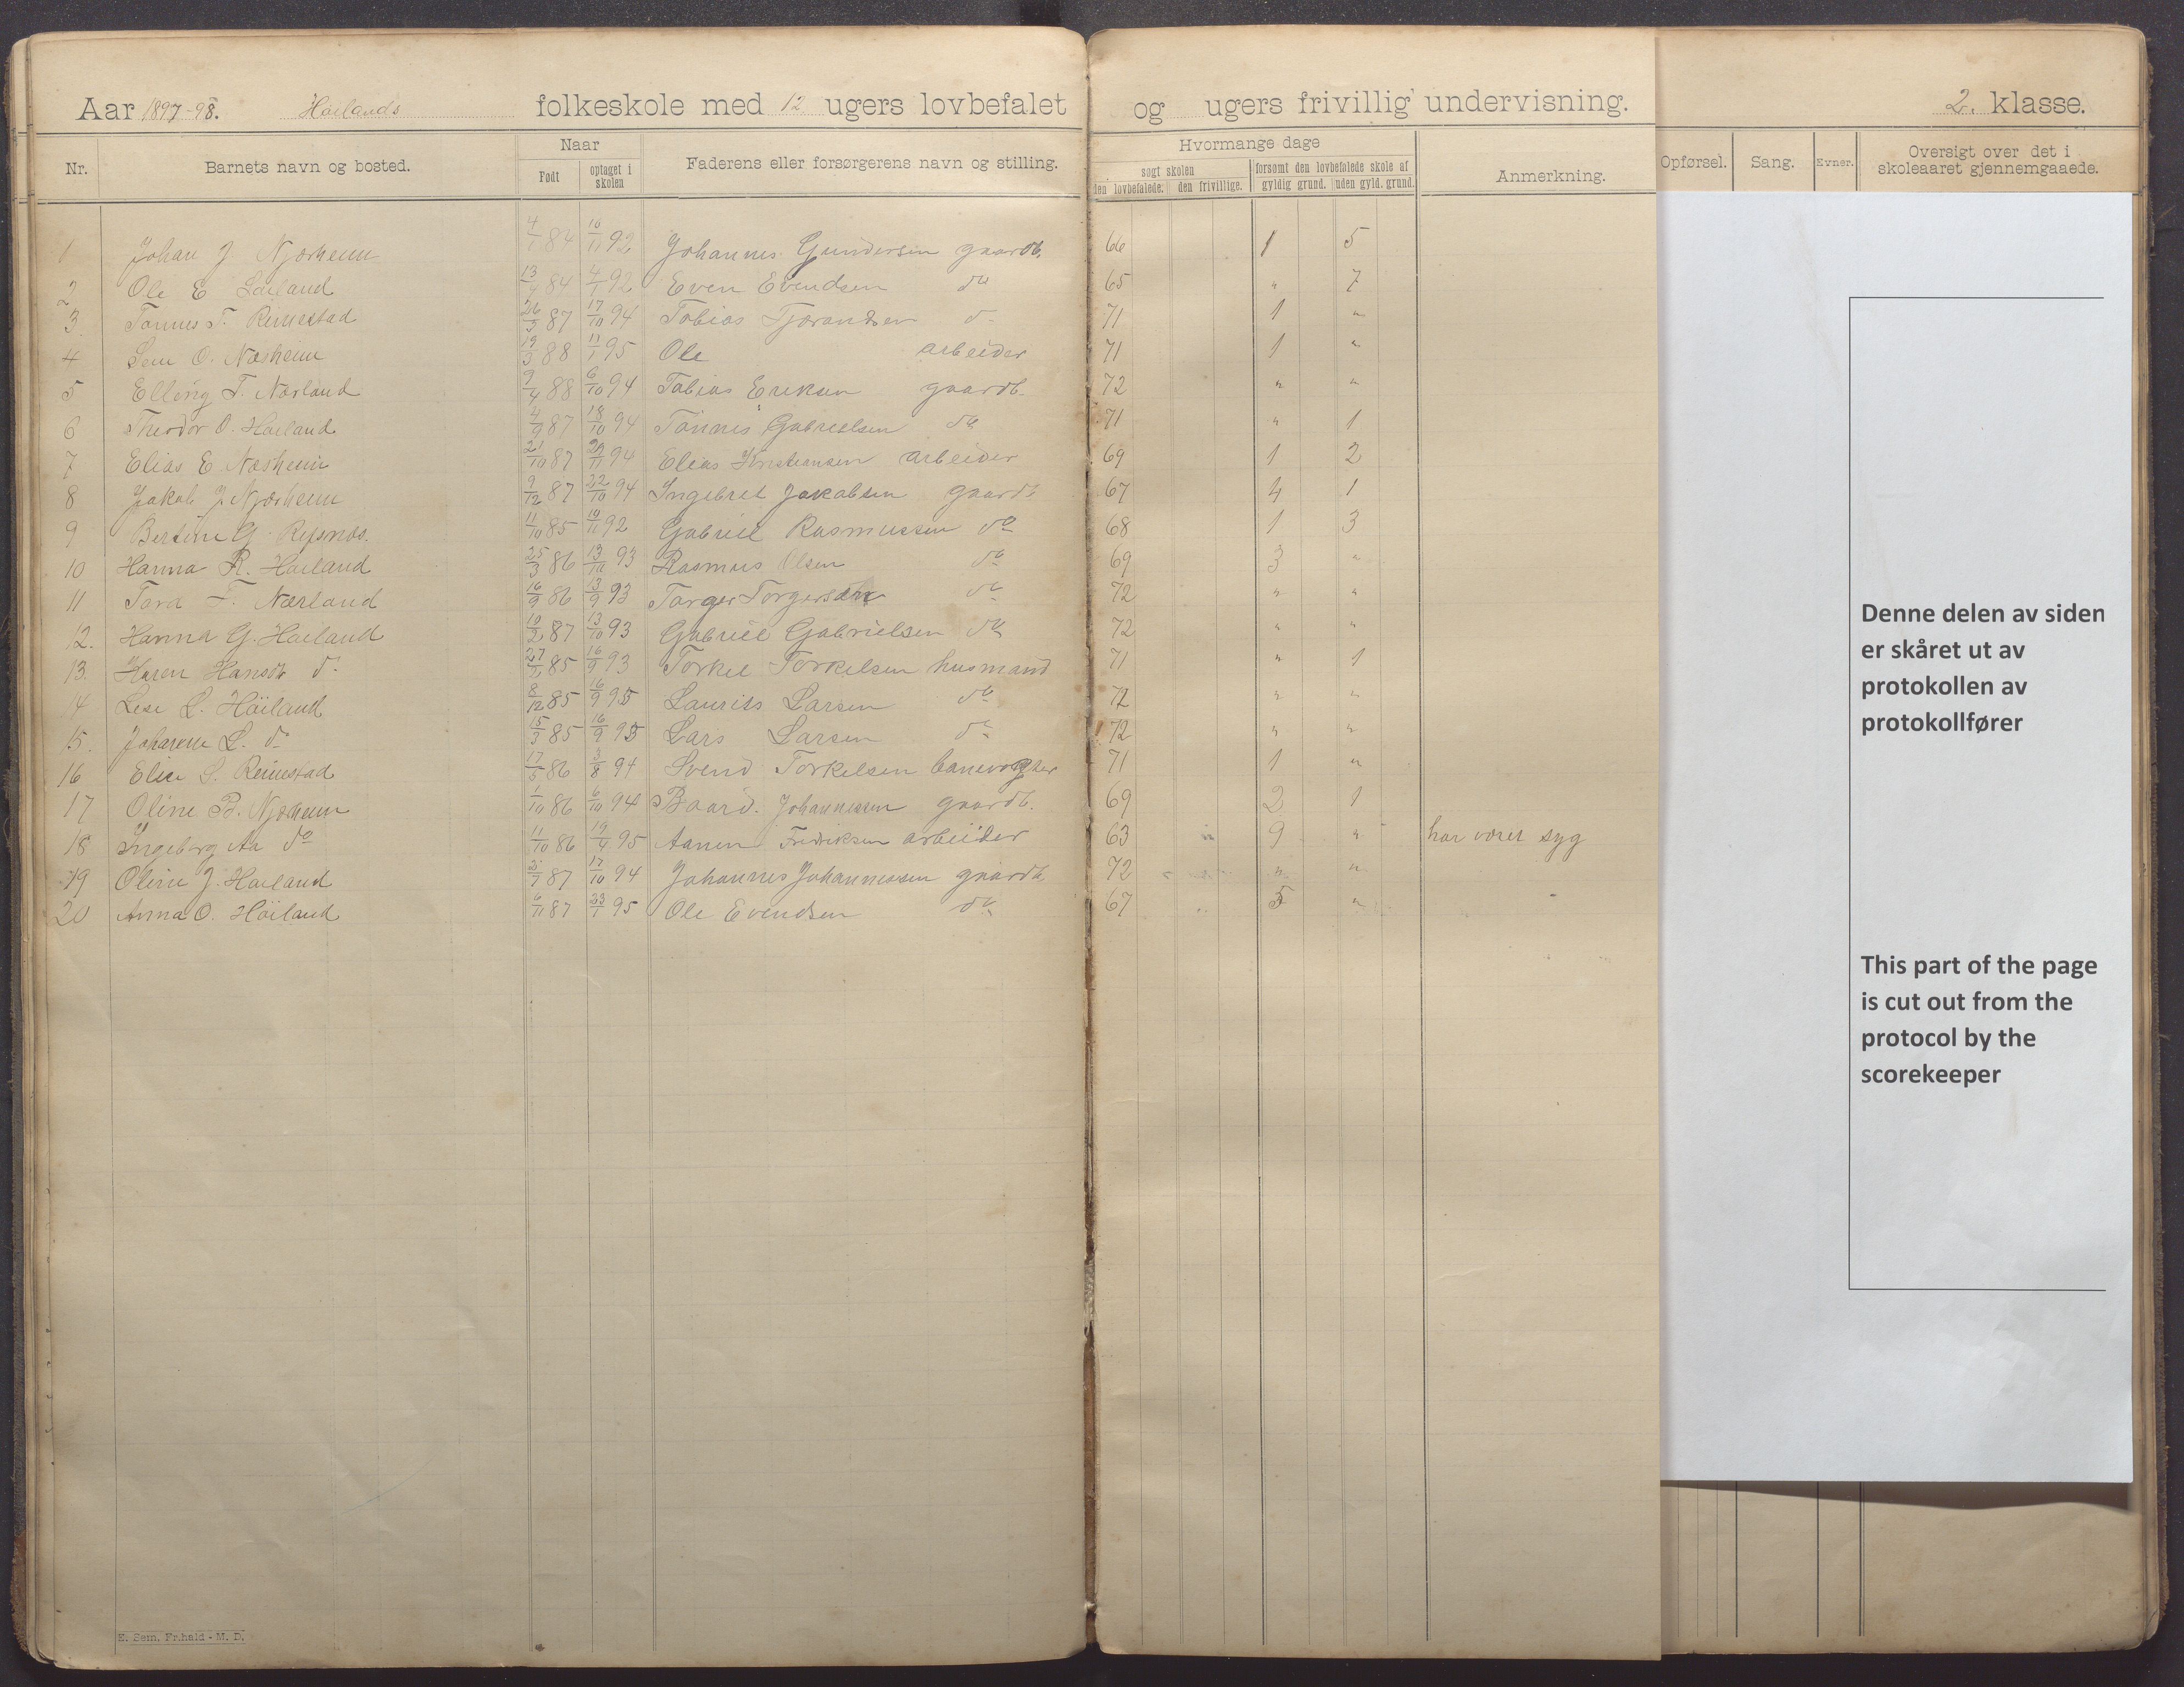 Aar 1897-98. Höilands folkeskole med 12 ugers lovbefalet og ugers frivillig undervisning. 2. klasse.
Nr. Barnets navn og bosted. Naar Født optaget i skolen Faderens eller forsørgerens navn og stilling. Hvormange dage søgt skolen den lovbefalede. den frivillige. forsømt den lovbefalede skole af gyldig grund. uden gyld. grund. Anmerkning. Opførsel. Sang. Evner. Oversigt over det i skoleaaret gjennemgaaede.
1 Johan J. Njærheim 84 10/11 92 Johannes Gundersen gaardb. 66 1 5
2 Ole E 13 84 4/1 92 Even Evendsen do 65 " 7
3. Tønnes T. Reimestad 26/3 87 17/10 94 Tobias Tjørandsen d- 71 1 "
4 O. Næsheim 19/3 88 11/1 95 Ole arbeider 71 1 "
5 Elling T. Nærland 9/4 88 6/10 94 Tobias Eriksen gaardb. 72 " "
6 Theodor O. Høiland 4/9 87 18/10 94 Tönnes Gabrielsen do 71 " 1
7 Elias E. Næsheim 21/10 87 94 Elias Kristiansen arbeider 69 1 2
8 Jakob J. Njærheim 9/12 87 22/10 94 Ingebret Jakobsen gaardb 67 4 1
9 Bertine G. 11/10 85 10/11 92 Gabriel Rasmussen do 68 1 3
10 Hanna R. Høiland 25/3 86 13/10 93 Rasmus Olsen do 69 3 "
11 Tora T. Nærland 16/9 86 13/9 93 Torger Torgersen do 72 " "
12. Hanna G. Høiland 10/2 87 13/10 93 Gabriel Gabrielsen do 72 " "
13. Karen Hansdt d- 27 85 16/9 93 Torkel Torkelsen husmand 71 " 1
14 Lise L. Höiland 8/12 85 16/9 95 Laurits Larsen do 72 " "
15. Johanne L. d- 15/3 85 16/9 95 Lars Larsen do 72 " "
16 Elise S. Reimestad 17/5 86 3/8 94 Svend Torkelsen banevogter 71 1 "
17 Oline B. Njærheim 1/10 86 6/10 94 Baard. Johannesen gaardb. 69 2 1
18 Ingeborg Aa do 11/10 86 19/4 95 Aanen Fredriksen arbeider 63 " 9 " har været syg
19 Oline J. Høiland 87 17/10 94 Johannes Johannessen gaardb. 72 " "
20 Anna O. Höiland 6/11 87 23/1 95 Ole Evendsen do 67 5 "
Denne delen av siden
er skåret ut av
protokollen av
protokollfører
This part of the page
is cut out from the
protocol by the
scorekeeper
E. Sem. Fr.hald - M. D.